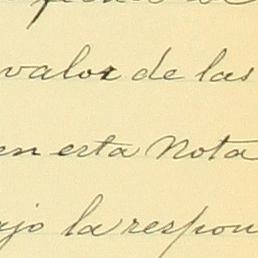 valor de las
en esta Nota
ajo la respon